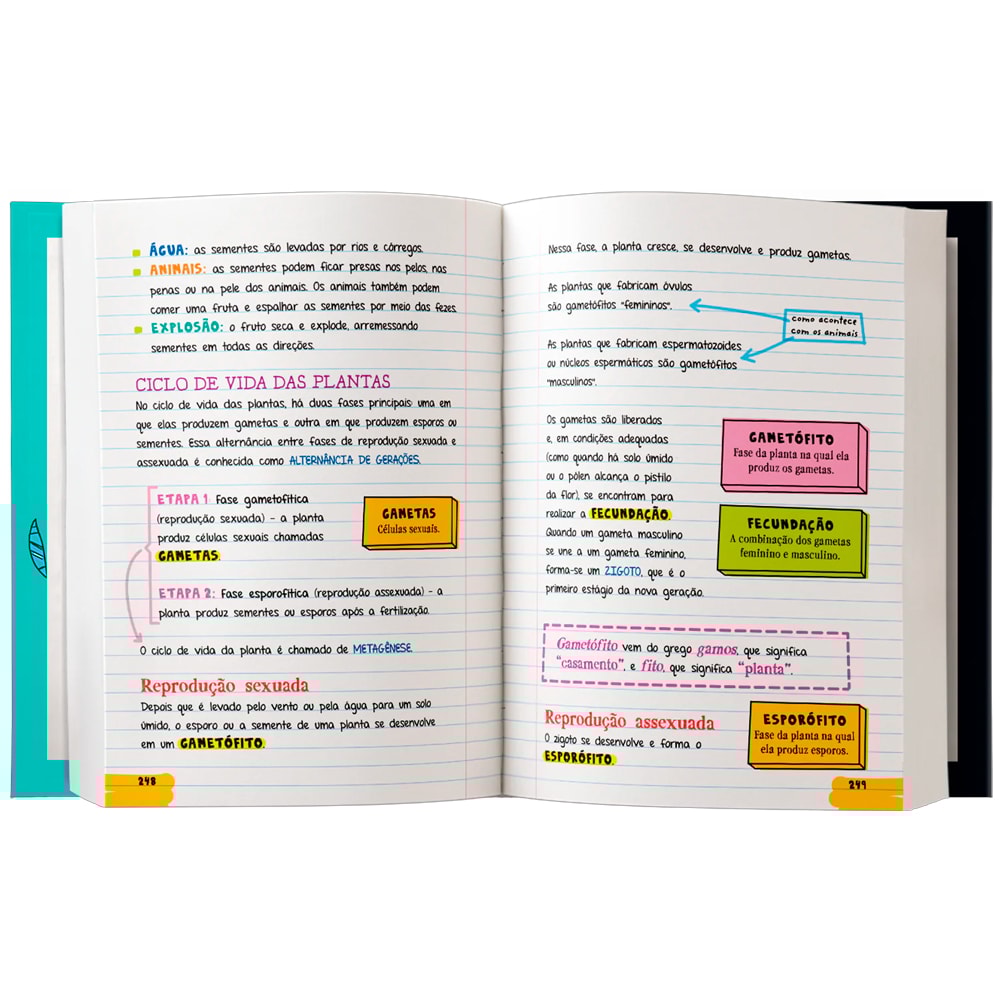 ÁGUA: as sementes são levadas por rios e córregos.
ANIMAIS: as sementes podem ficar presas nos pelos, nas
penas ou na pele dos animais. Os animais também podem
comer uma fruta e espalhar as sementes por meio das fezes.
EXPLOSÃO: o fruto seca e explode, arremessando
sementes em todas as direções.
CICLO DE VIDA DAS PLANTAS
No ciclo de vida das plantas, há duas fases principais: uma em
que elas produzem gametas e outra em que produzem esporos ou
sementes. Essa alternância entre fases de reprodução sexuada e
assexuada é conhecida como ALTERNÂNCIA DE GERAÇÕES.
ETAPA 1: Fase gametofítica
(reprodução sexuada) – a planta
produz células sexuais chamadas
GAMETAS.
GAMETAS
Células sexuais.
ETAPA 2: Fase esporofítica (reprodução assexuada) – a
planta produz sementes ou esporos após a fertilização.
O ciclo de vida da planta é chamado de METAGÊNESE.
Reprodução sexuada
Depois que é levado pelo vento ou pela água para um solo
úmido, o esporo ou a semente de uma planta se desenvolve
em um GAMETÓFITO.
248
Nessa fase, a planta cresce, se desenvolve e produz gametas.
As plantas que fabricam óvulos
são gametófitos "femininos".
como acontece
com os animais
As plantas que fabricam espermatozoides
ou núcleos espermáticos são gametófitos
"masculinos".
Os gametas são liberados
e, em condições adequadas
(como quando há solo úmido
ou o pólen alcança o pistilo
da flor), se encontram para
realizar a FECUNDAÇÃO.
Quando um gameta masculino
se une a um gameta feminino,
forma-se um ZIGOTO, que é o
primeiro estágio da nova geração.
GAMETÓFITO
Fase da planta na qual ela
produz os gametas.
FECUNDAÇÃO
A combinação dos gametas
feminino e masculino.
Gametófito vem do grego gamos, que significa
"casamento", e fito, que significa "planta".
Reprodução assexuada
O zigoto se desenvolve e forma o
ESPORÓFITO.
ESPORÓFITO
Fase da planta na qual
ela produz esporos.
249